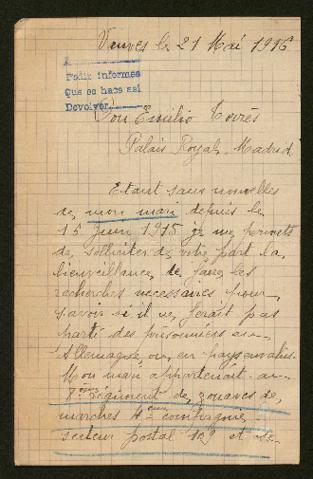 Vanves le 21 Mai 1916
Pedir informes
Que se hace así
Devolver
Don Emilio Torrès
Palais Royal, Madrid
Etant sans nouvelles
de, mon mari depuis le
15 Juin 1915 je me permets
de, solliciter de votre part la
bienveillance, de faire les
recherches nécessaires pour
savoir si il ne, ferait pas
parti des prisonniers en
Allemagne, ou, en pays envahis.
Mon mari appartenait au
régiment de, zouaves de,
marches 4eme compagnie,
secteur postal 109 et se